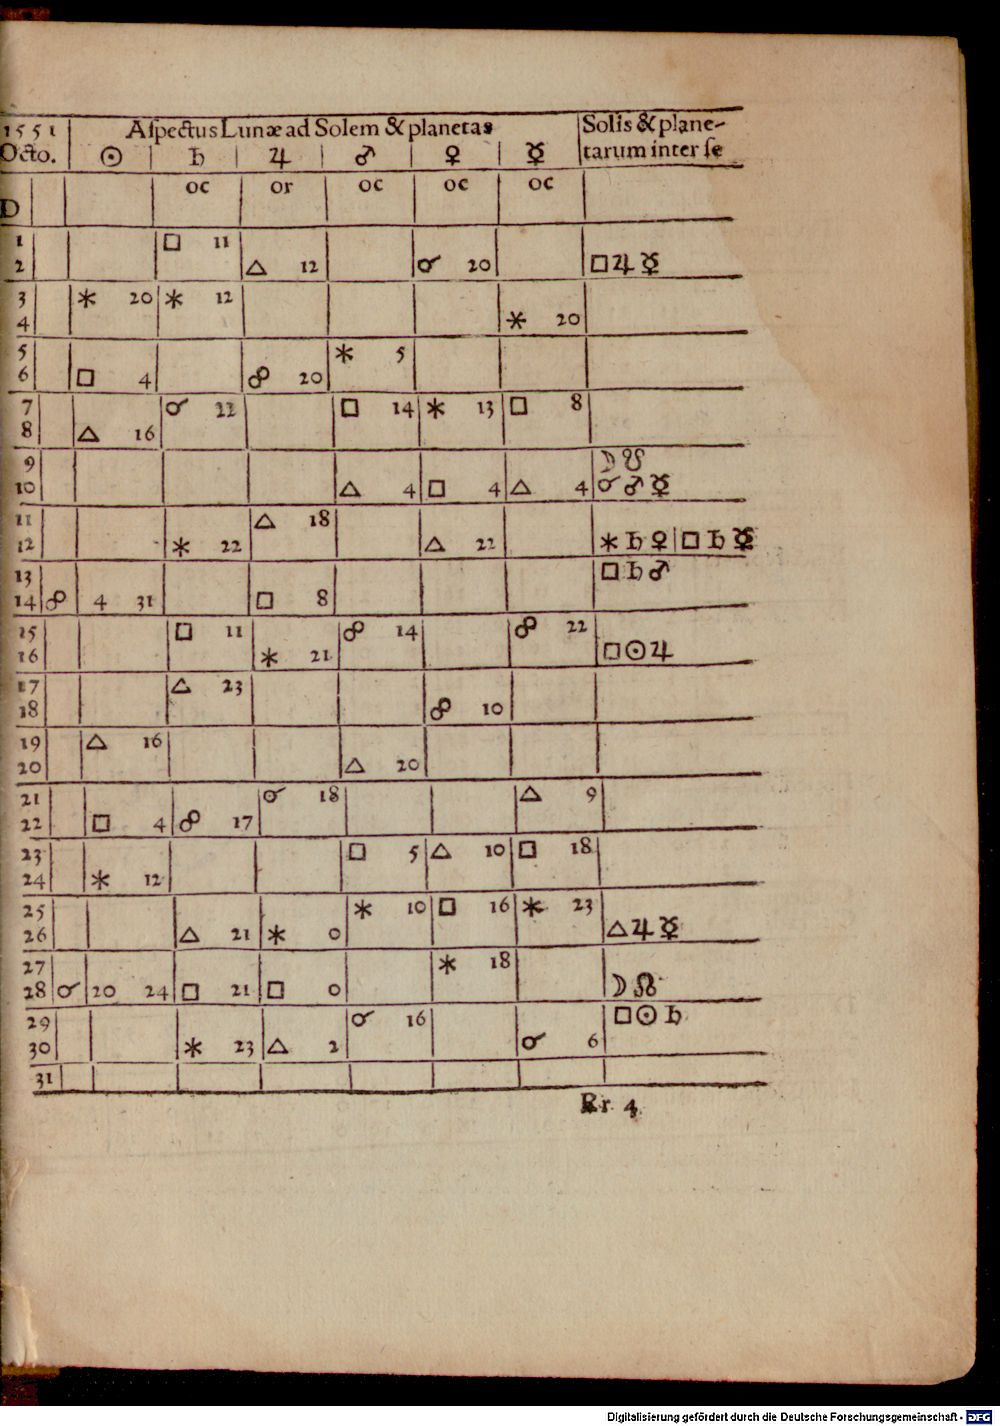 1551 Aſpectus Lunæ ad Solem & planetas Solis & plane-
Octo. ☉ ♄ ♃ ♂ ♀ ☿ tarum inter ſe
oc or oc oc oc
D
1 □ 11
2 △ 12 ☌ 20 □ ♃ ☿
3 ⚹ 20 ⚹ 12
4 ⚹ 20
5 ⚹ 5
6 □ 4 ☍ 20
7 ☌ 22 □ 14 ⚹ 13 □ 8
8 △ 16
9 ☽ ☋
10 △ 4 □ 4 △ 4 ☌ ♂ ☿
11 △ 18
12 ⚹ 22 △ 22 ⚹ ♄ ♀ □ ♄ ☿
13 □ ♄ ♂
14 ☍ 4 31 □ 8
15 □ 11 ☍ 14 ☍ 22
16 ⚹ 21 □ ☉ ♃
17 △ 23
18 ☍ 10
19 △ 16
20 △ 20
21 ☌ 18 △ 9
22 □ 4 ☍ 17
23 □ 5 △ 10 □ 18
24 ⚹ 12
25 ⚹ 10 □ 16 ⚹ 23
26 △ 21 ⚹ 0 △ ♃ ☿
27 ⚹ 18
28 ☌ 20 24 □ 21 □ 0 ☽ ☊
29 ☌ 16 □ ☉ ♄
30 ⚹ 23 △ 2 ☌ 6
31
Rr 4
Digitalisierung gefördert durch die Deutsche Forschungsgemeinschaft - DFG